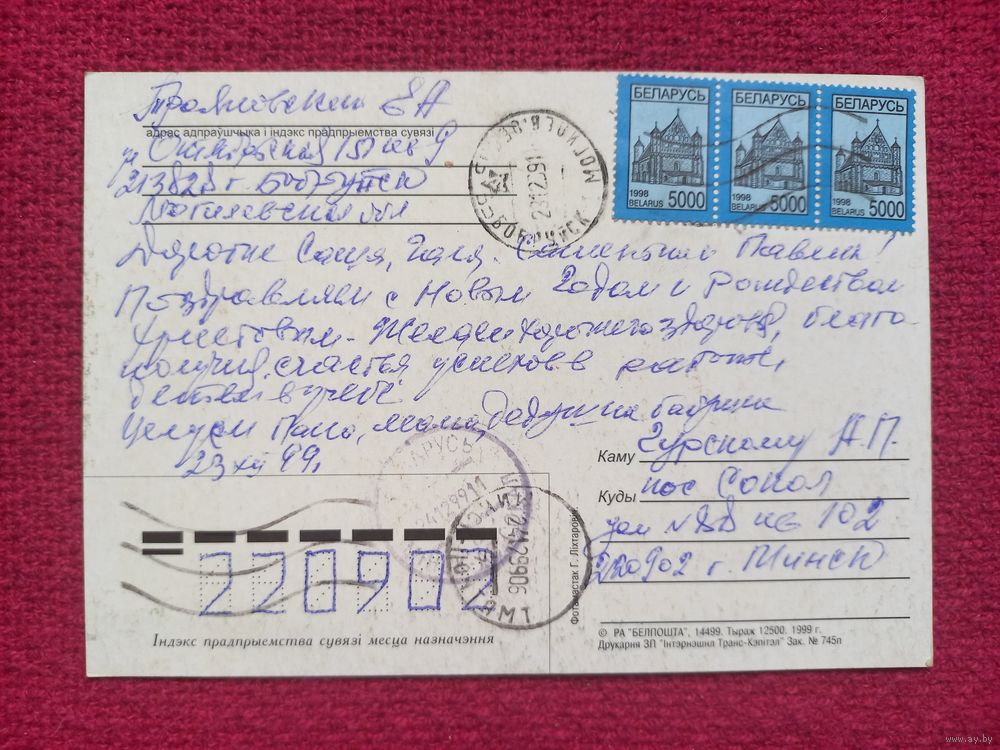 Трояновский ЕА
адрас адпраўшчыка і індэкс прадпрыемства сувязі
Октябрьская 157 кв 9
213828 г. Бобруйск
Могилевская обл
БЕЛАРУСЬ
1998
BELARUS 5000
БЕЛАРУСЬ
1998
BELARUS 5000
БЕЛАРУСЬ
1998
BELARUS 5000
Дорогие Саша, Галя.
Поздравляем с Новым Годом и Рождеством
Христовым. Желаем хорошего здоровья, благо-
получия, счастья, успехов в работе,
детям в учебе
Целуем Папа, мама, дедушка бабушка
23 XII 99г
Каму Гурскому А.П.
Куды пос Сокол
дом N 88 кв 102
220902 г. Минск
220902
Індэкс прадпрыемства сувязі месца назначэння
Фотамастак Г. Ліхтаровіч
© РА "БЕЛПОШТА", 14499. Тыраж 12500. 1999 г.
Друкарня ЗП "Інтэрнэшнл Транс-Кэпітэл" Зак. № 745п
www.ay.by